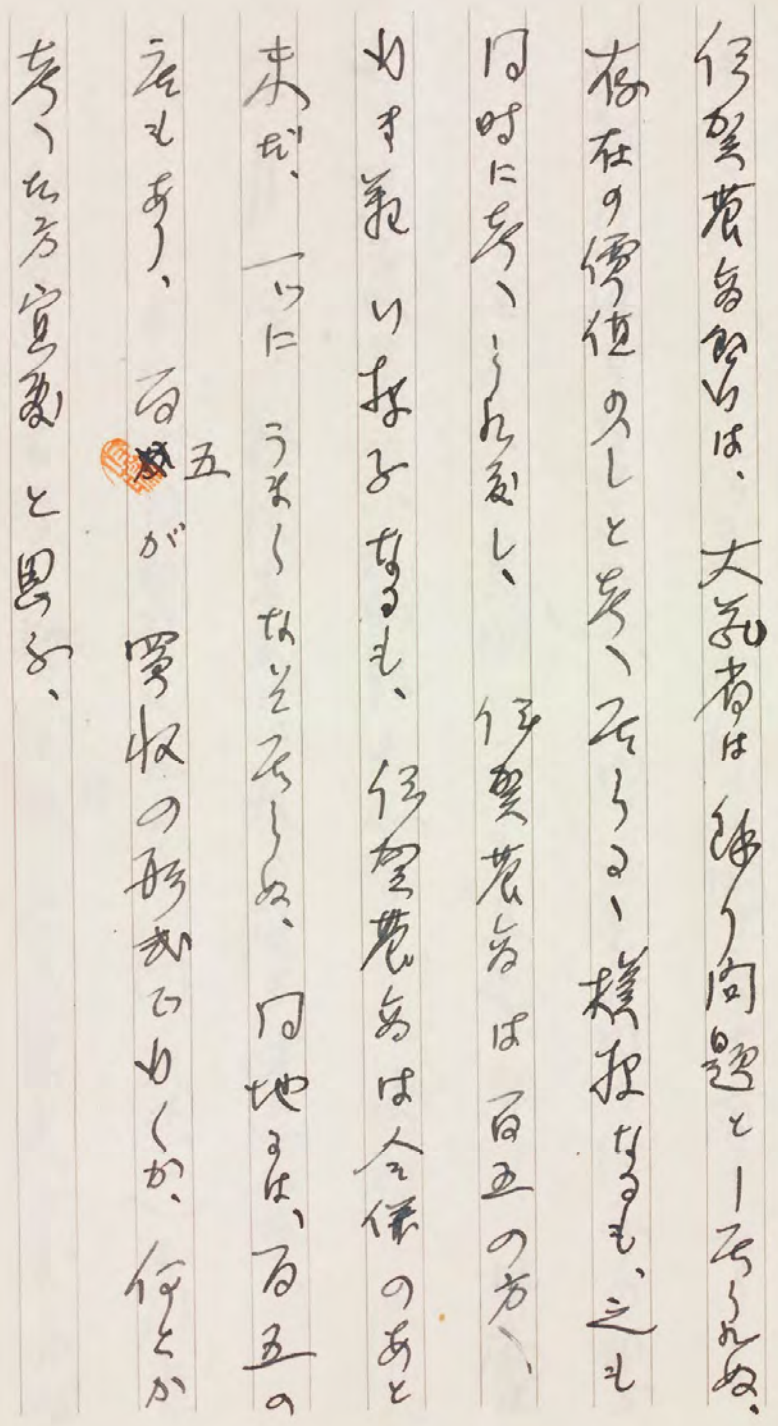 伊賀農商銀行は、大蔵省は餘り問題として居られぬ、
存在の價値なしと考へ居らるゝ模様なるも、之も
同時に考へられ度し、伊賀農商は百五の方へ、
ゆき難い様子なるも、伊賀農商は合併のあと
未だ、一つにうまくなつて居らぬ、同地には、百五の
店もあり、百五が買収の形式でゆくか、何とか
考へた方宜敷と思ふ、